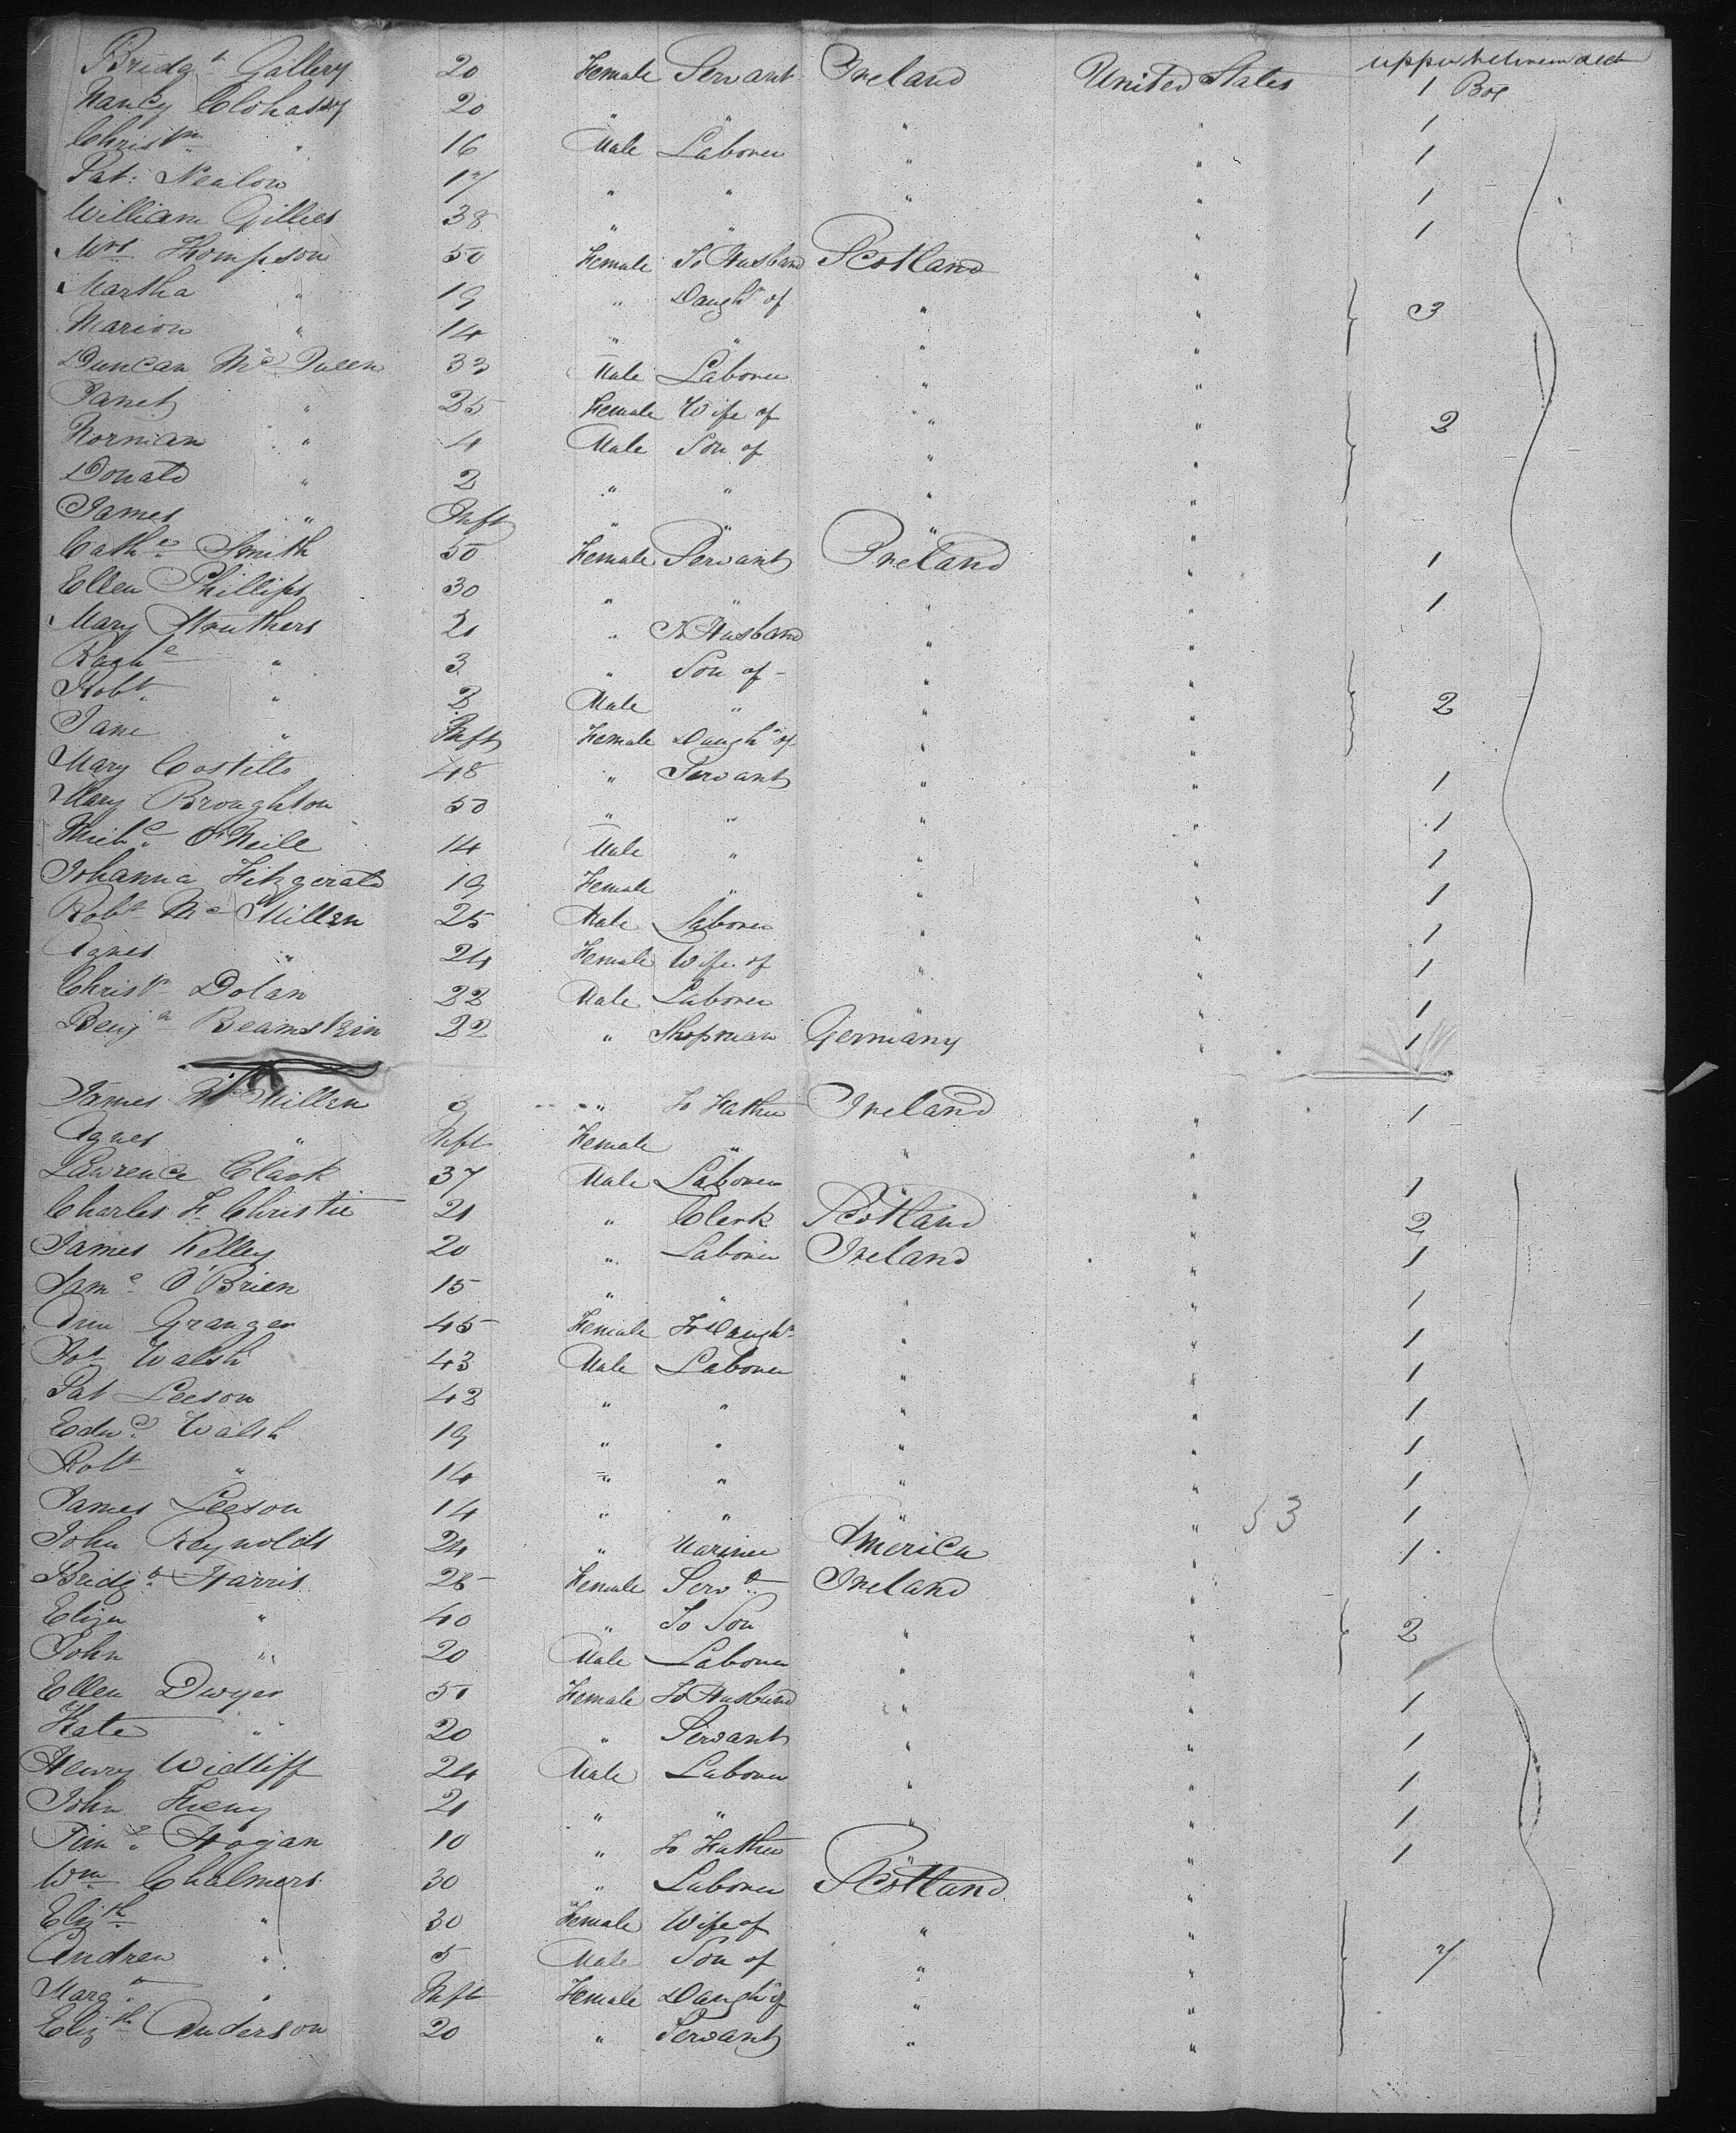 Bridgt Gallery 20 Female Servant Ireland United States upper between deck 1 Box
Nancy Clohassy 20 " " " " 1
Christr " 16 Male Laborer " " 1
Pat: Nealon 17 " " " " 1
William Gillies 38 " " " 1
Mrs Thompson 50 Female To Husband Scotland "
Martha " 19 " Daughr of " " 3
Marion " 14 " " " "
Duncan McQueen 33 Male Laborer " "
Janet " 35 Female Wife of " " 2
Norman " 4 Male Son of " "
Donald " 2 " " " "
James " Inft " " " "
Cathe Smith 50 Female Servant Ireland " 1
Ellen Phillips 30 " " " " 1
Mary Struthers 21 " To Husband " "
" 3 " Son of - " "
Robt " 2 Male " " " 2
Jane " Inft Female Daughr of " "
Mary Costello 48 " Servant " " 1
Mary Broughton 50 " " " " 1
Michl O'Neile 14 Male " " " 1
Johanna Fitzgerald 19 Female " " " 1
Robt McMillen 25 Male Laborer " " 1
Agnes " 24 Female Wife of " " 1
Christr Dolan 22 Male Laborer " " 1
Benjn Beamskin 22 " Shopman Germany " 1
James McMillen 3 " To Father Ireland " 1
Agnes " Inft Female " " "
Lawrence Clark 37 Male Laborer " " 1
Charles F. Christie 21 " Clerk Scotland " 2
James Kelley 20 " Laborer Ireland " 1
Saml O'Brien 15 " " " " 1
Ann Granger 45 Female To Daughr " " 1
Jos Walsh 43 Male Laborer " " 1
Pat Leeson 42 " " " " 1
Edwd Walsh 19 " " " " 1
Robt " 14 " " " " 1
James Leeson 14 " " " " 53 1
John Reynolds 24 " Mariner America " 1
Bridgt Harris 28 Female Servt Ireland "
Eliza " 40 " To Son " " 2
John " 20 Male Laborer " "
Ellen Dwyer 51 Female To Husband " " 1
Kate " 20 " Servant " " 1
Henry Widliff 24 Male Laborer " " 1
John 21 " " " " 1
Timy Hogan 10 " To Father " " 1
Wm Chalmers 30 " Laborer Scotland "
Elizth " 30 Female Wife of " "
Andrew " 5 Male Son of " " 4
Margt " Inft Female Daughr of " "
Elizth Anderson 20 " Servant " "